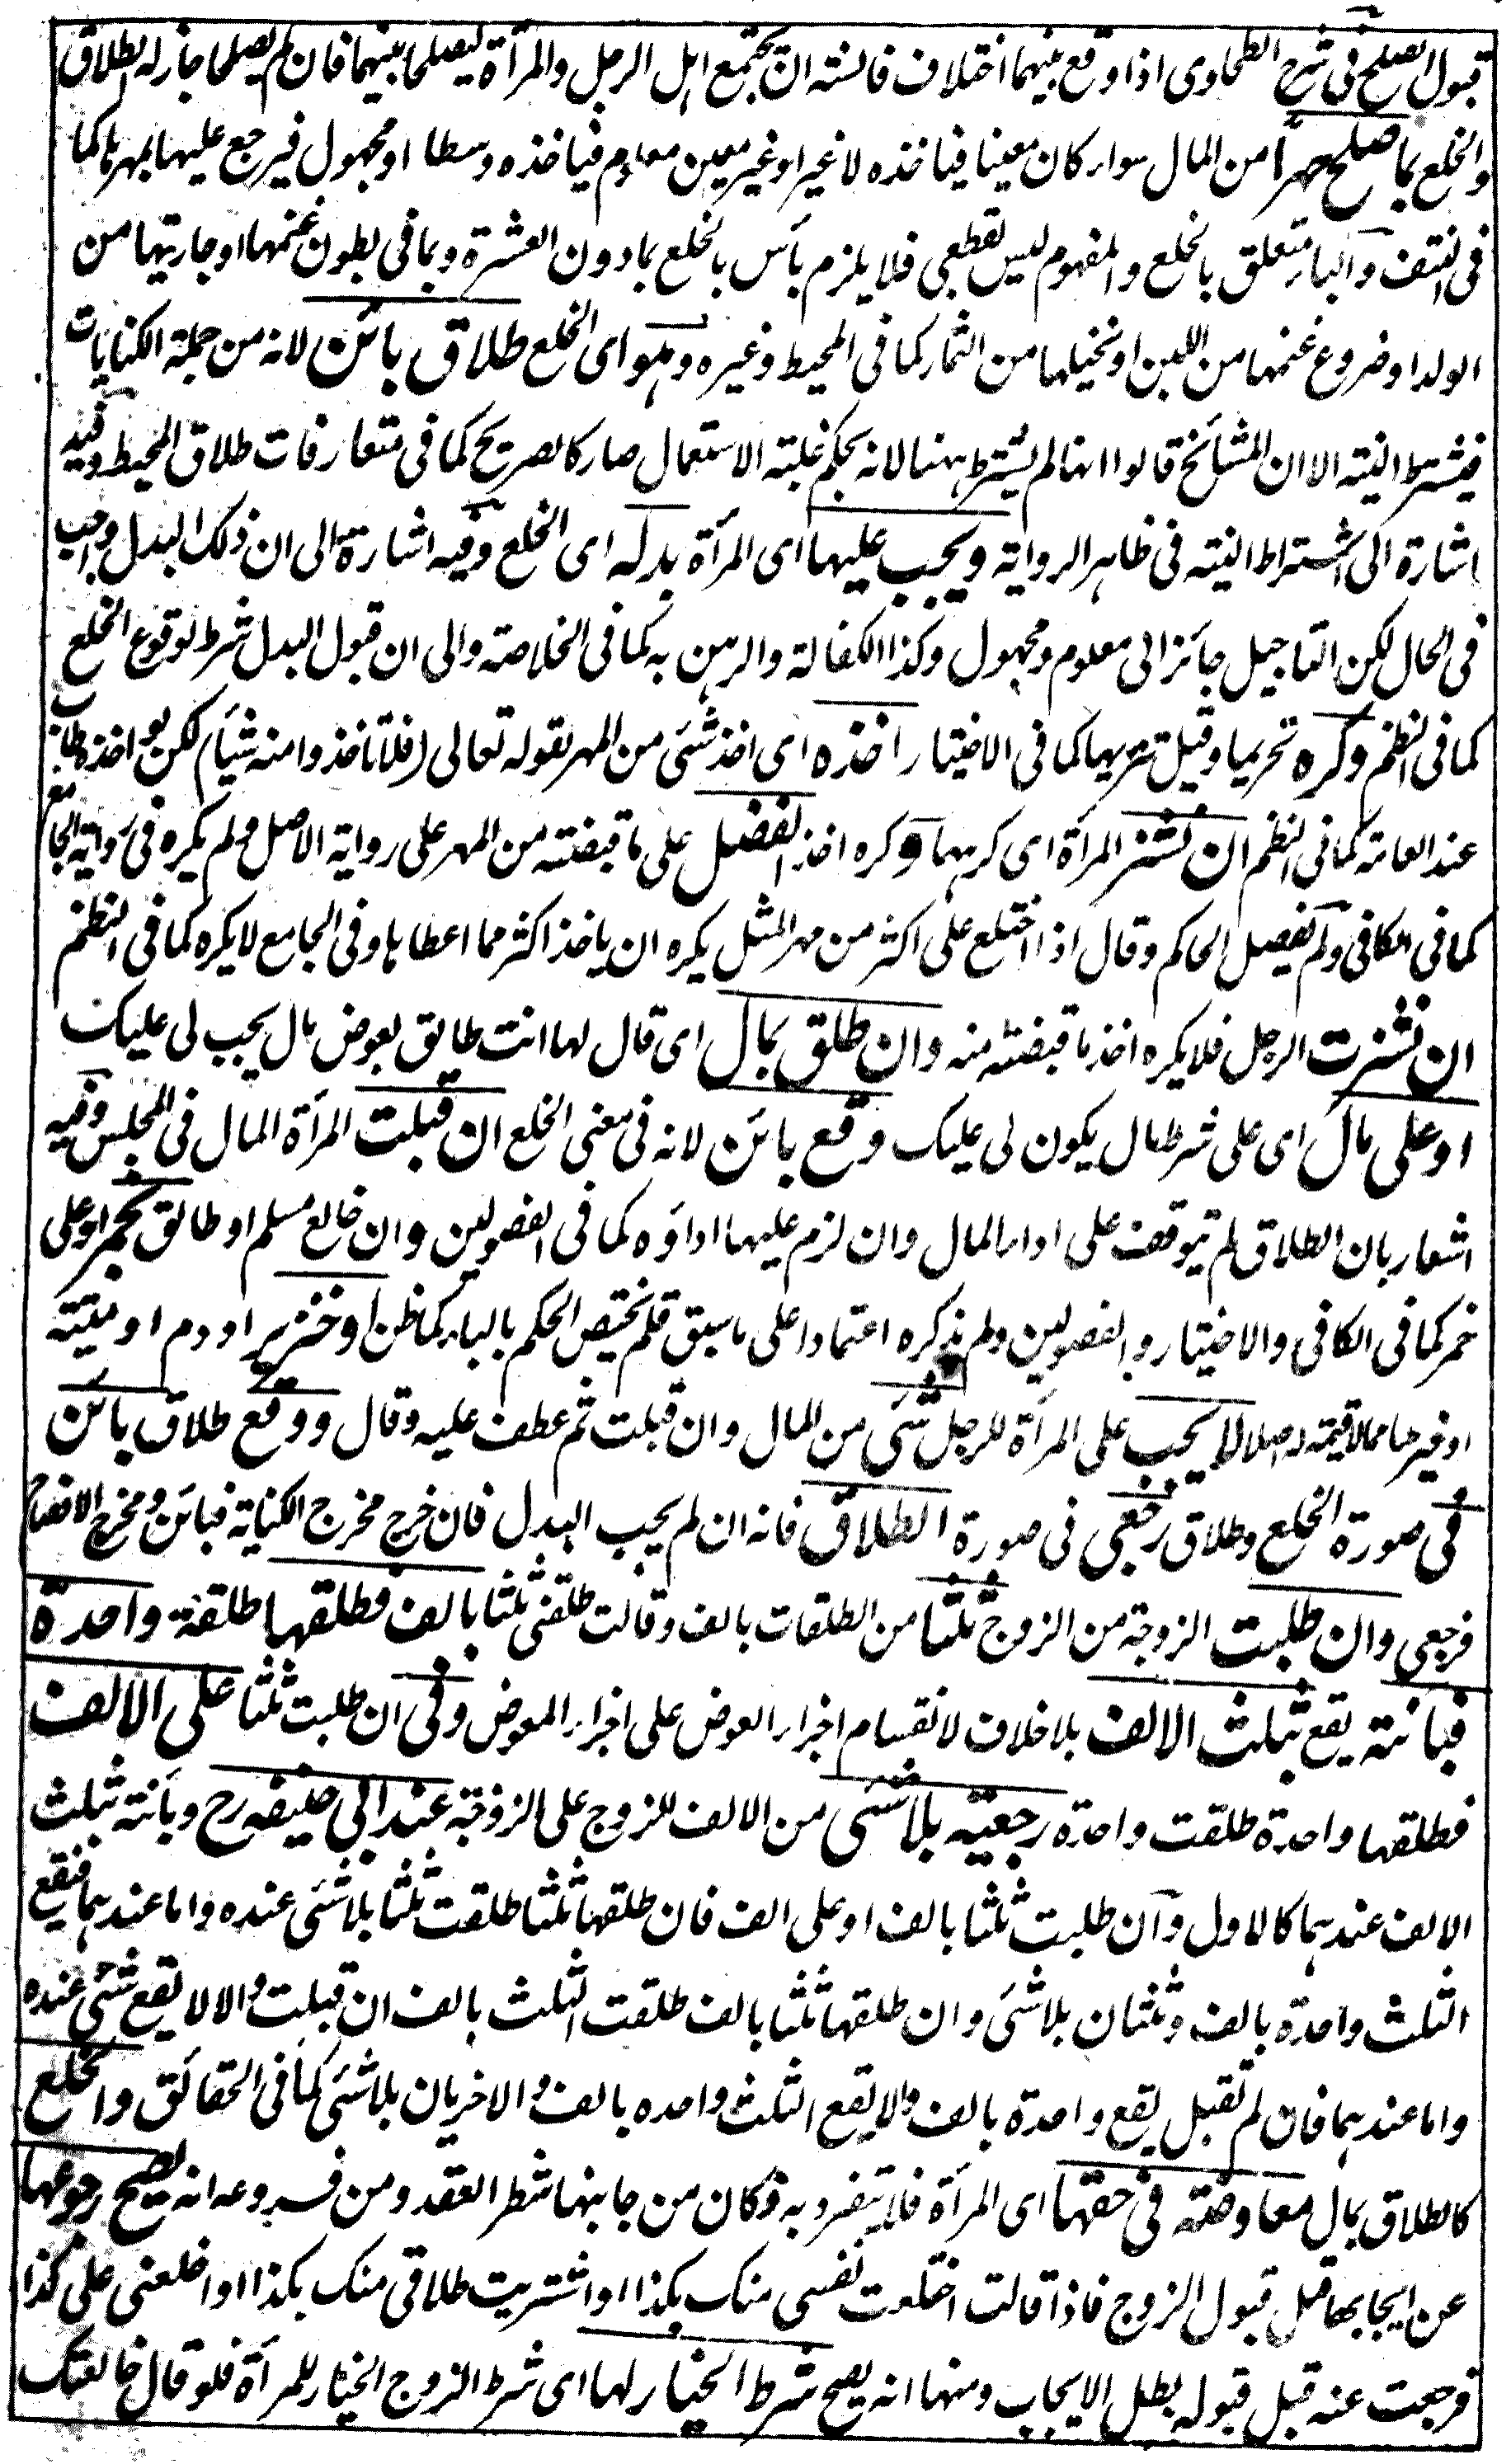 قبول الصلح فى شرح الطحاوى اذا وقع بينهما اختلاف فالسنة ان يجتمع اهل الرجل والمرأة ليصلحا بينهما فان لم يصلحا جاز له الطلاق
والخلع بما صلح مهرا من المال سواء كان معينا فيأخذه لا غير او غير معين معلوم فيأخذه وسطا او مجهول فيرجع عليها بمهرها كما
فى النتف والباء متعلق بالخلع والمفهوم ليس بقطعى فلا يلزم بأس بالخلع بما دون العشرة وبما فى بطون غنمها او جاريتها من
الولد او ضروع غنمها من اللبن او نخيلها من الثمار كما فى المحيط وغيره وهو اى الخلع طلاق بائن لانه من جملة الكنايات
فيشترط النية الا ان المشائخ قالوا انها لم يشترط ههنا لانه بحكم غلبة الاستعمال صار كالصريح كما فى متعارفات طلاق المحيط وفيه
اشارة الى اشتراط النية فى ظاهر الرواية ويجب عليها اى المرأة بدله اى الخلع وفيه اشارة الى ان ذلك البدل واجب
فى الحال لكن التاجيل جائز الى معلوم ومجهول وكذا الكفالة والرهن به كما فى الخلاصة والى ان قبول البدل شرط لوقوع الخلع
كما فى النظم وكره تحريما وقيل تنزيها كما فى الاختيار اخذه اى اخذ شئ من المهر بقوله تعالى (فلا تأخذوا منه شيأ) لكن لو اخذه طاب
عند العامة كما فى النظم ان نشز المرأة اى كرهها وكره اخذ الفضل على ما قبضته من المهر على رواية الاصل ولم يكره فى رواية الجامع
كما فى الكافى ولم يفصل الحاكم وقال اذا اختلع على اكثر من مهر المثل يكره ان ياخذ اكثر مما اعطاها وفى الجامع لا يكره كما فى النظم
ان نشزت الرجل فلا يكره اخذ ما قبضته منه وان طلق بمال اى قال لها انت طالق بعوض مال يجب لى عليك
او على مال اى على شرط مال يكون لى عليك وقع بائن لانه فى معنى الخلع ان قبلت المرأة المال فى المجلس وفيه
اشعار بان الطلاق لم يتوقف على اداء المال وان لزم عليها اداؤه كما فى الفصولين وان خالع مسلم او طالق بخمر او على
خمر كما فى الكافى والاختيار والفصولين ولم يذكره اعتمادا على ما سبق فلم يختص الحكم بالباء كما ظن او خنزير او دم او ميتة
او غيرها مما لا قيمة له اصلا لا يجب على المرأة للرجل شئ من المال وان قبلت ثم عطف عليه وقال ووقع طلاق بائن
فى صورة الخلع وطلاق رجعى فى صورة الطلاق فانه ان لم يجب البدل فان خرج مخرج الكناية فبائن ومخرج الافصاح
فرجعى وان طلبت الزوجة من الزوج ثلثا من الطلقات بالف وقالت طلقنى ثلثا بالف فطلقها طلقة واحدة
فبائنة يقع بثلث الالف بلا خلاف لانقسام اجزاء العوض على اجزاء المعوض وفى ان طلبت ثلثا على الالف
فطلقها واحدة طلقت واحدة رجعية بلا شئ من الالف للزوج على الزوجة عند ابى حنيفة رح وبائنة بثلث
الالف عندهما كالاول وان طلبت ثلثا بالف او على الف فان طلقها ثلثا طلقت ثلثا بلا شئ عنده واما عندهما فيقع
الثلث واحدة بالف وثنتان بلا شئ وان طلقها ثلثا بالف طلقت الثلث بالف ان قبلت والا لا يقع شئ عنده
واما عندهما فان لم تقبل يقع واحدة بالف والا يقع الثلث واحده بالف والاخريان بلا شئ كما فى الحقائق والخلع
كالطلاق بمال معاوضة فى حقها اى المرأة فلا يتفرد به فكان من جانبها شطر العقد ومن فروعه انه يصح رجوعها
عن ايجابها قبل قبول الزوج فاذا قالت اختلعت نفسى منك بكذا او اشتريت طلاقى منك بكذا او اخلعنى على كذا
فرجعت عنه قبل قبوله بطل الايجاب ومنها انه يصح شرط الخيار لها اى شرط الزوج الخيار للمرأة فلو قال خالعتك